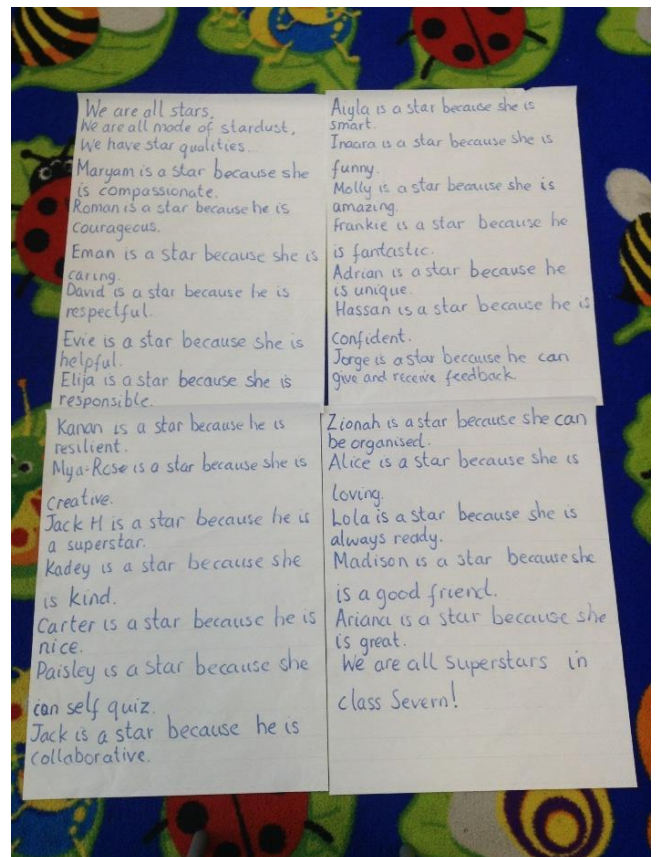 We are all stars,
We are all made of stardust,
We have star qualities...
Maryam is a star because she
is compassionate.
Roman is a star because he is
courageous.
Eman is a star because she is
caring.
David is a star because he is
respectful.
Evie is a star because she is
helpful.
Elija is a star because she is
responsible.
Kanan is a star because he is
resilient.
Mya-Rose is a star because she is
creative.
Jack H is a star because he is
a superstar.
Kadey is a star because she
is kind.
Carter is a star because he is
nice.
Paisley is a star because she
can self quiz.
Jack is a star because he is
collaborative.
Aiyla is a star because she is
smart.
Inaara is a star because she is
funny.
Molly is a star because she is
amazing.
Frankie is a star because he
is fantastic.
Adrian is a star because he
is unique.
Hassan is a star because he is
confident.
Jorge is a star because he can
give and receive feedback.
Zionah is a star because she can
be organised.
Alice is a star because she is
loving.
Lola is a star because she is
always ready.
Madison is a star because she
is a good friend.
Ariana is a star because she
is great.
We are all superstars in
class Severn!